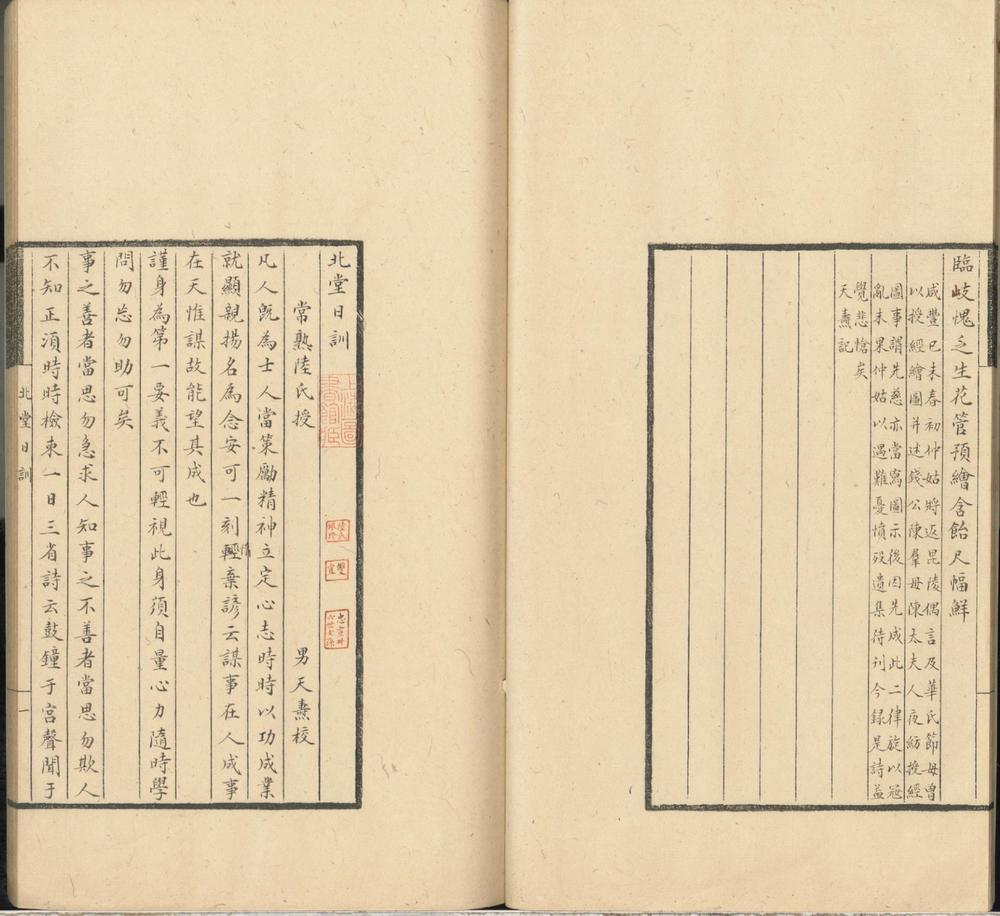 臨歧愧乏生花管預繪含飴尺幅鮮
咸豐已未春初仲姑將返毘陵偶言及華氏節母曾
以授經繪圖并述錢公陳羣母陳太夫人夜紡授經
圖事謂先慈亦當寫圖示後因先成此二律旋以寇
亂未果仲姑以遇難憂憤歿遺集待刊今録是詩益
覺悲愴矣
天燾記
北堂日訓
常熟陸氏授
男天燾校
凡人既為士人當策勵精神立定心志時時以功成業
就顯親揚名為念安可一刻輕棄諺云謀事在人成事
在天惟謀故能望其成也
謹身為第一要義不可輕視此身須自量心力隨時學
問勿忘勿助可矣
事之善者當思勿急求人知事之不善者當思勿欺人
不知正須時時檢束一日三省詩云鼓鐘于宮聲聞于
北堂日訓
一